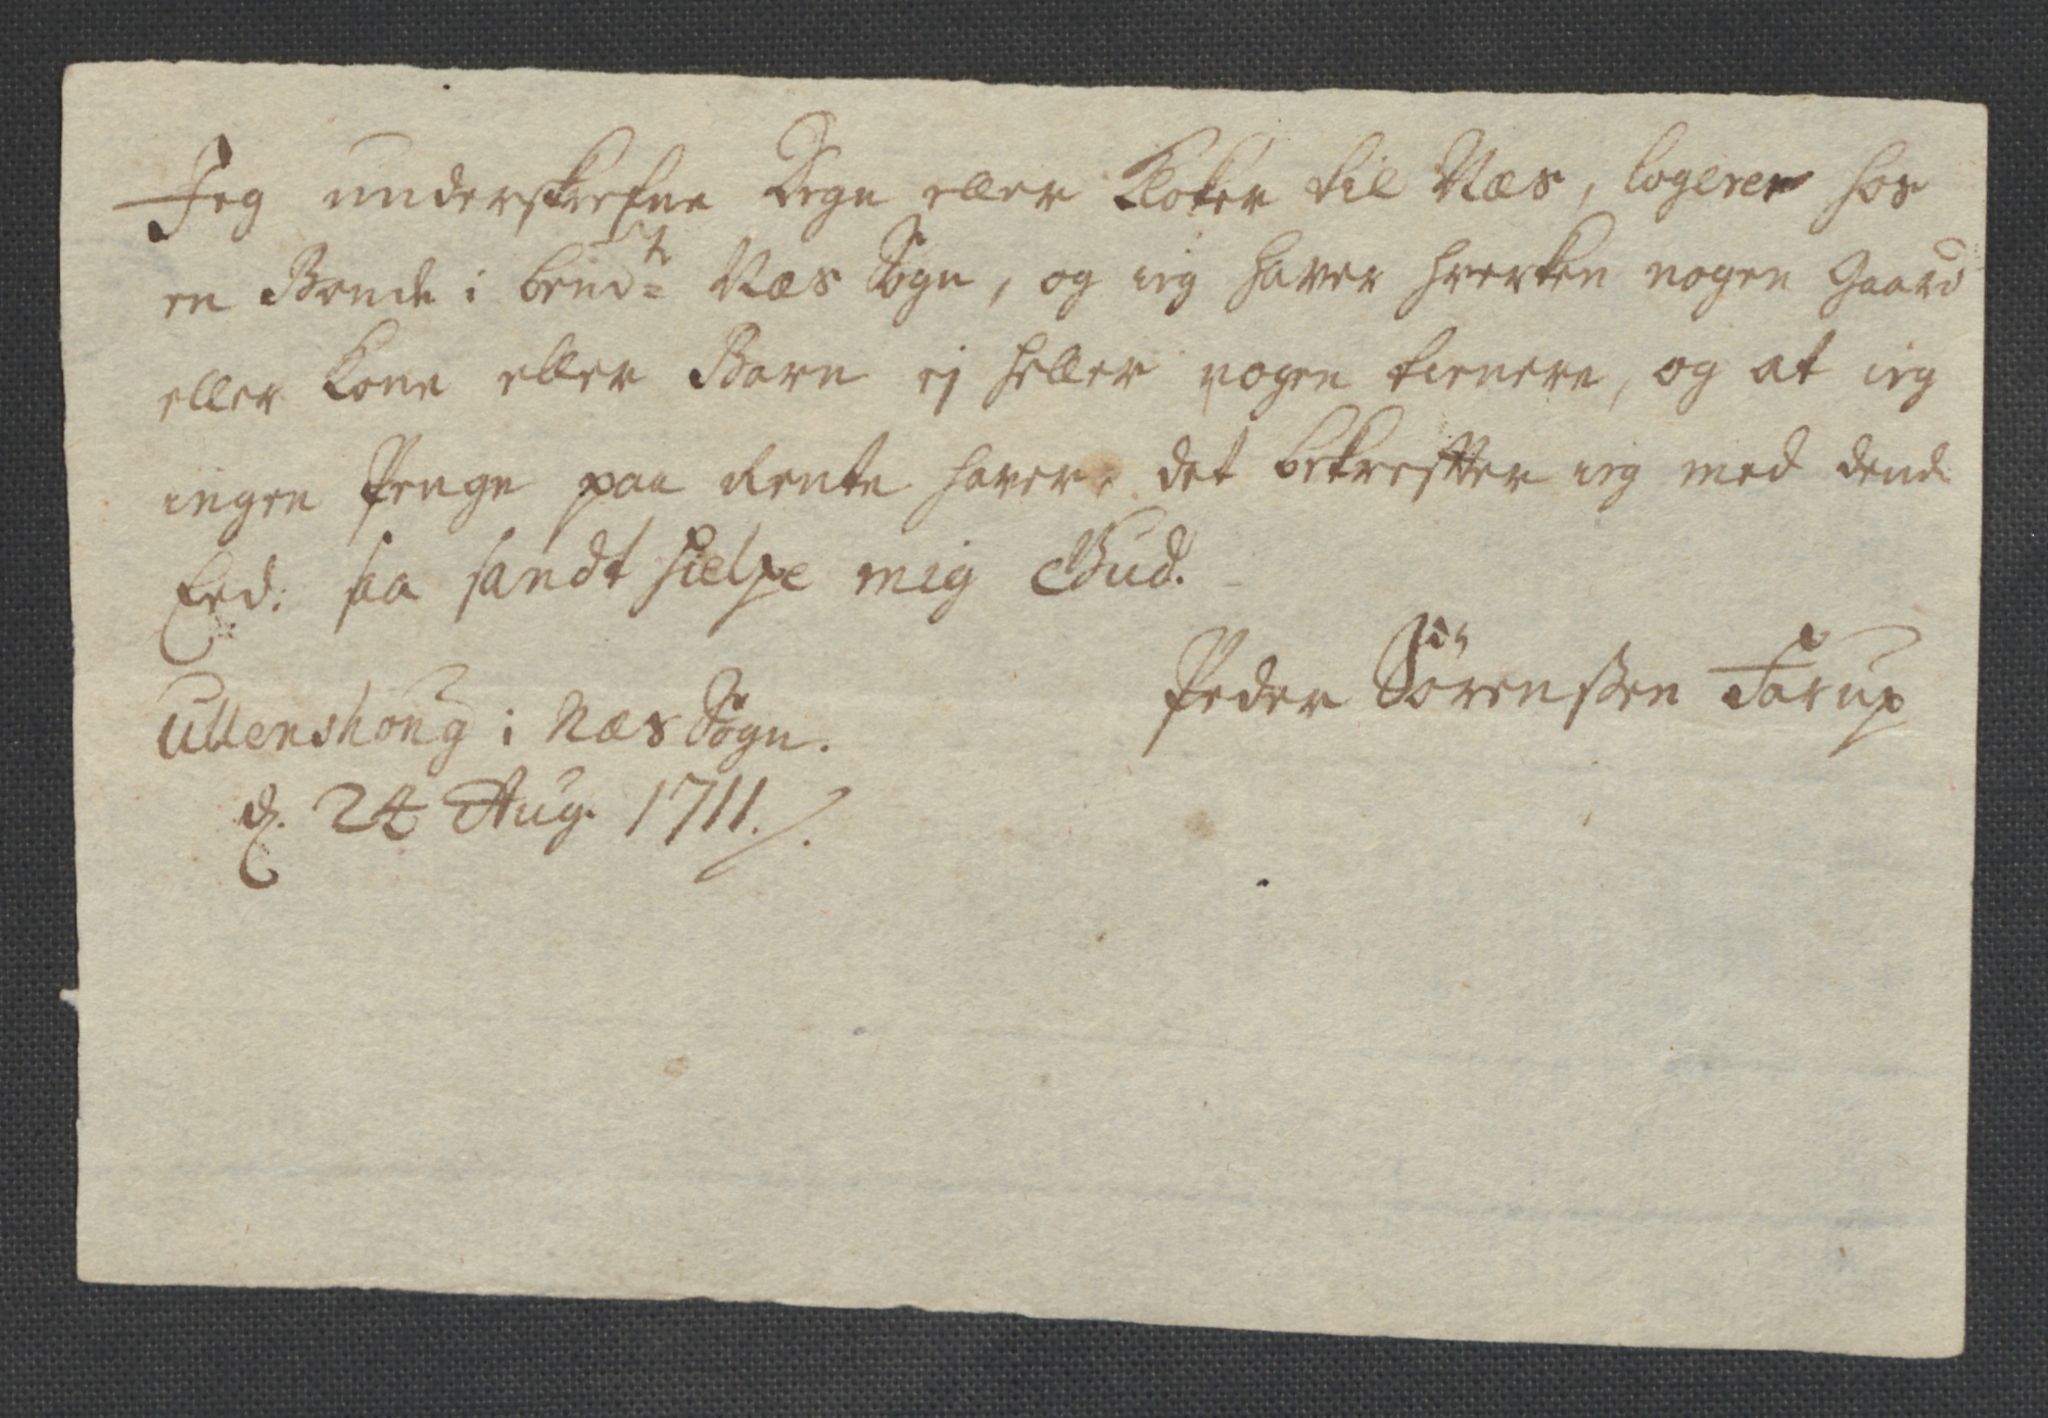 Jeg underskrefne Degn eller Kloker til Næs, logerer hos
en Bonde i bemdte Næs Sogn, og ieg haver hverken nogen Gaard
eller Kone eller Barn ej heller nogen tienere, og at ieg
ingen Penge paa Rente haver, det bekrefter ieg med dend
Eed: saa sandt hielpe mig Gud.
Peder Sörenßen Farup
Ullenshoug i Næs Sogn.
d. 24 Aug. 1711./.